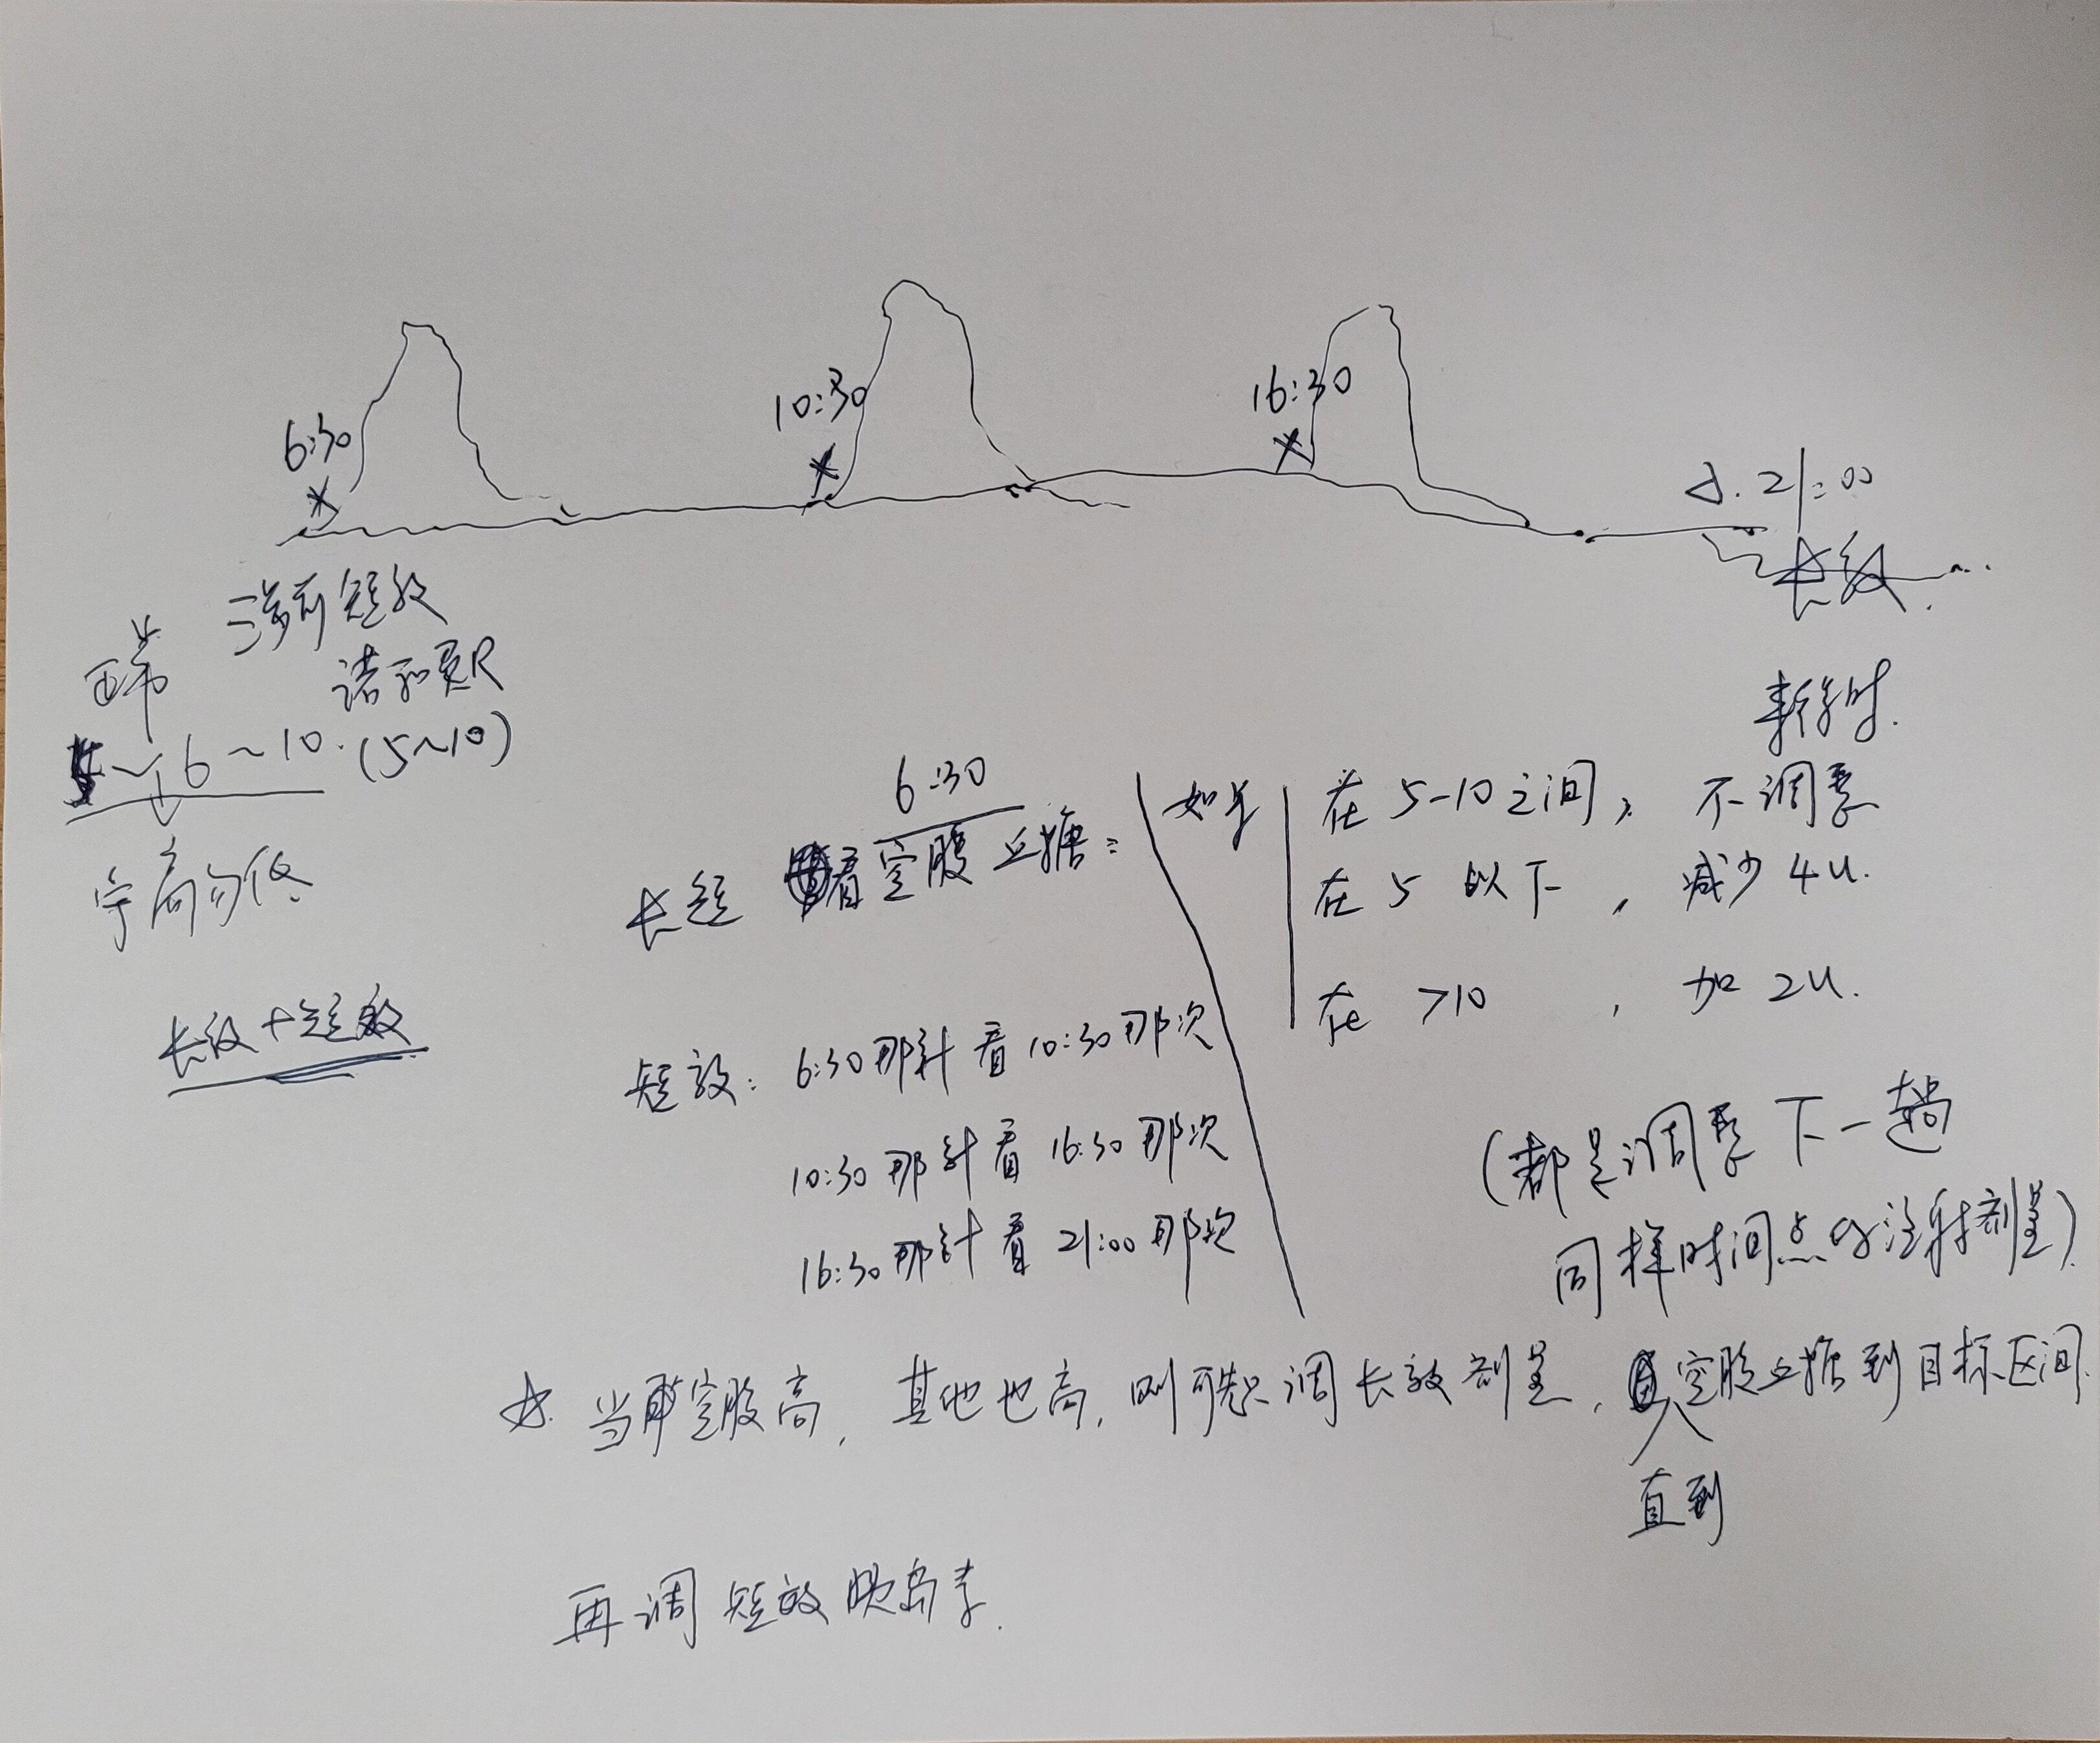 6:30
10:30
16:30
21:00
长效
三餐前短效
诺和灵R
正常
6~10. (5~10)
宁高勿低
长效+短效
6:30
看空腹血糖:
如果
在 5-10 之间, 不调整
在 5 以下, 减少 4u.
在 >10, 加 2u.
短效: 6:30那针看10:30那次
10:30那针看16:30那次
16:30那针看21:00那次
(都是调整下一趟
同样时间点的注射剂量)
☆. 当空腹高, 其他也高, 则可先只调长效剂量, 空腹血糖到目标区间.
直到
再调短效胰岛素.